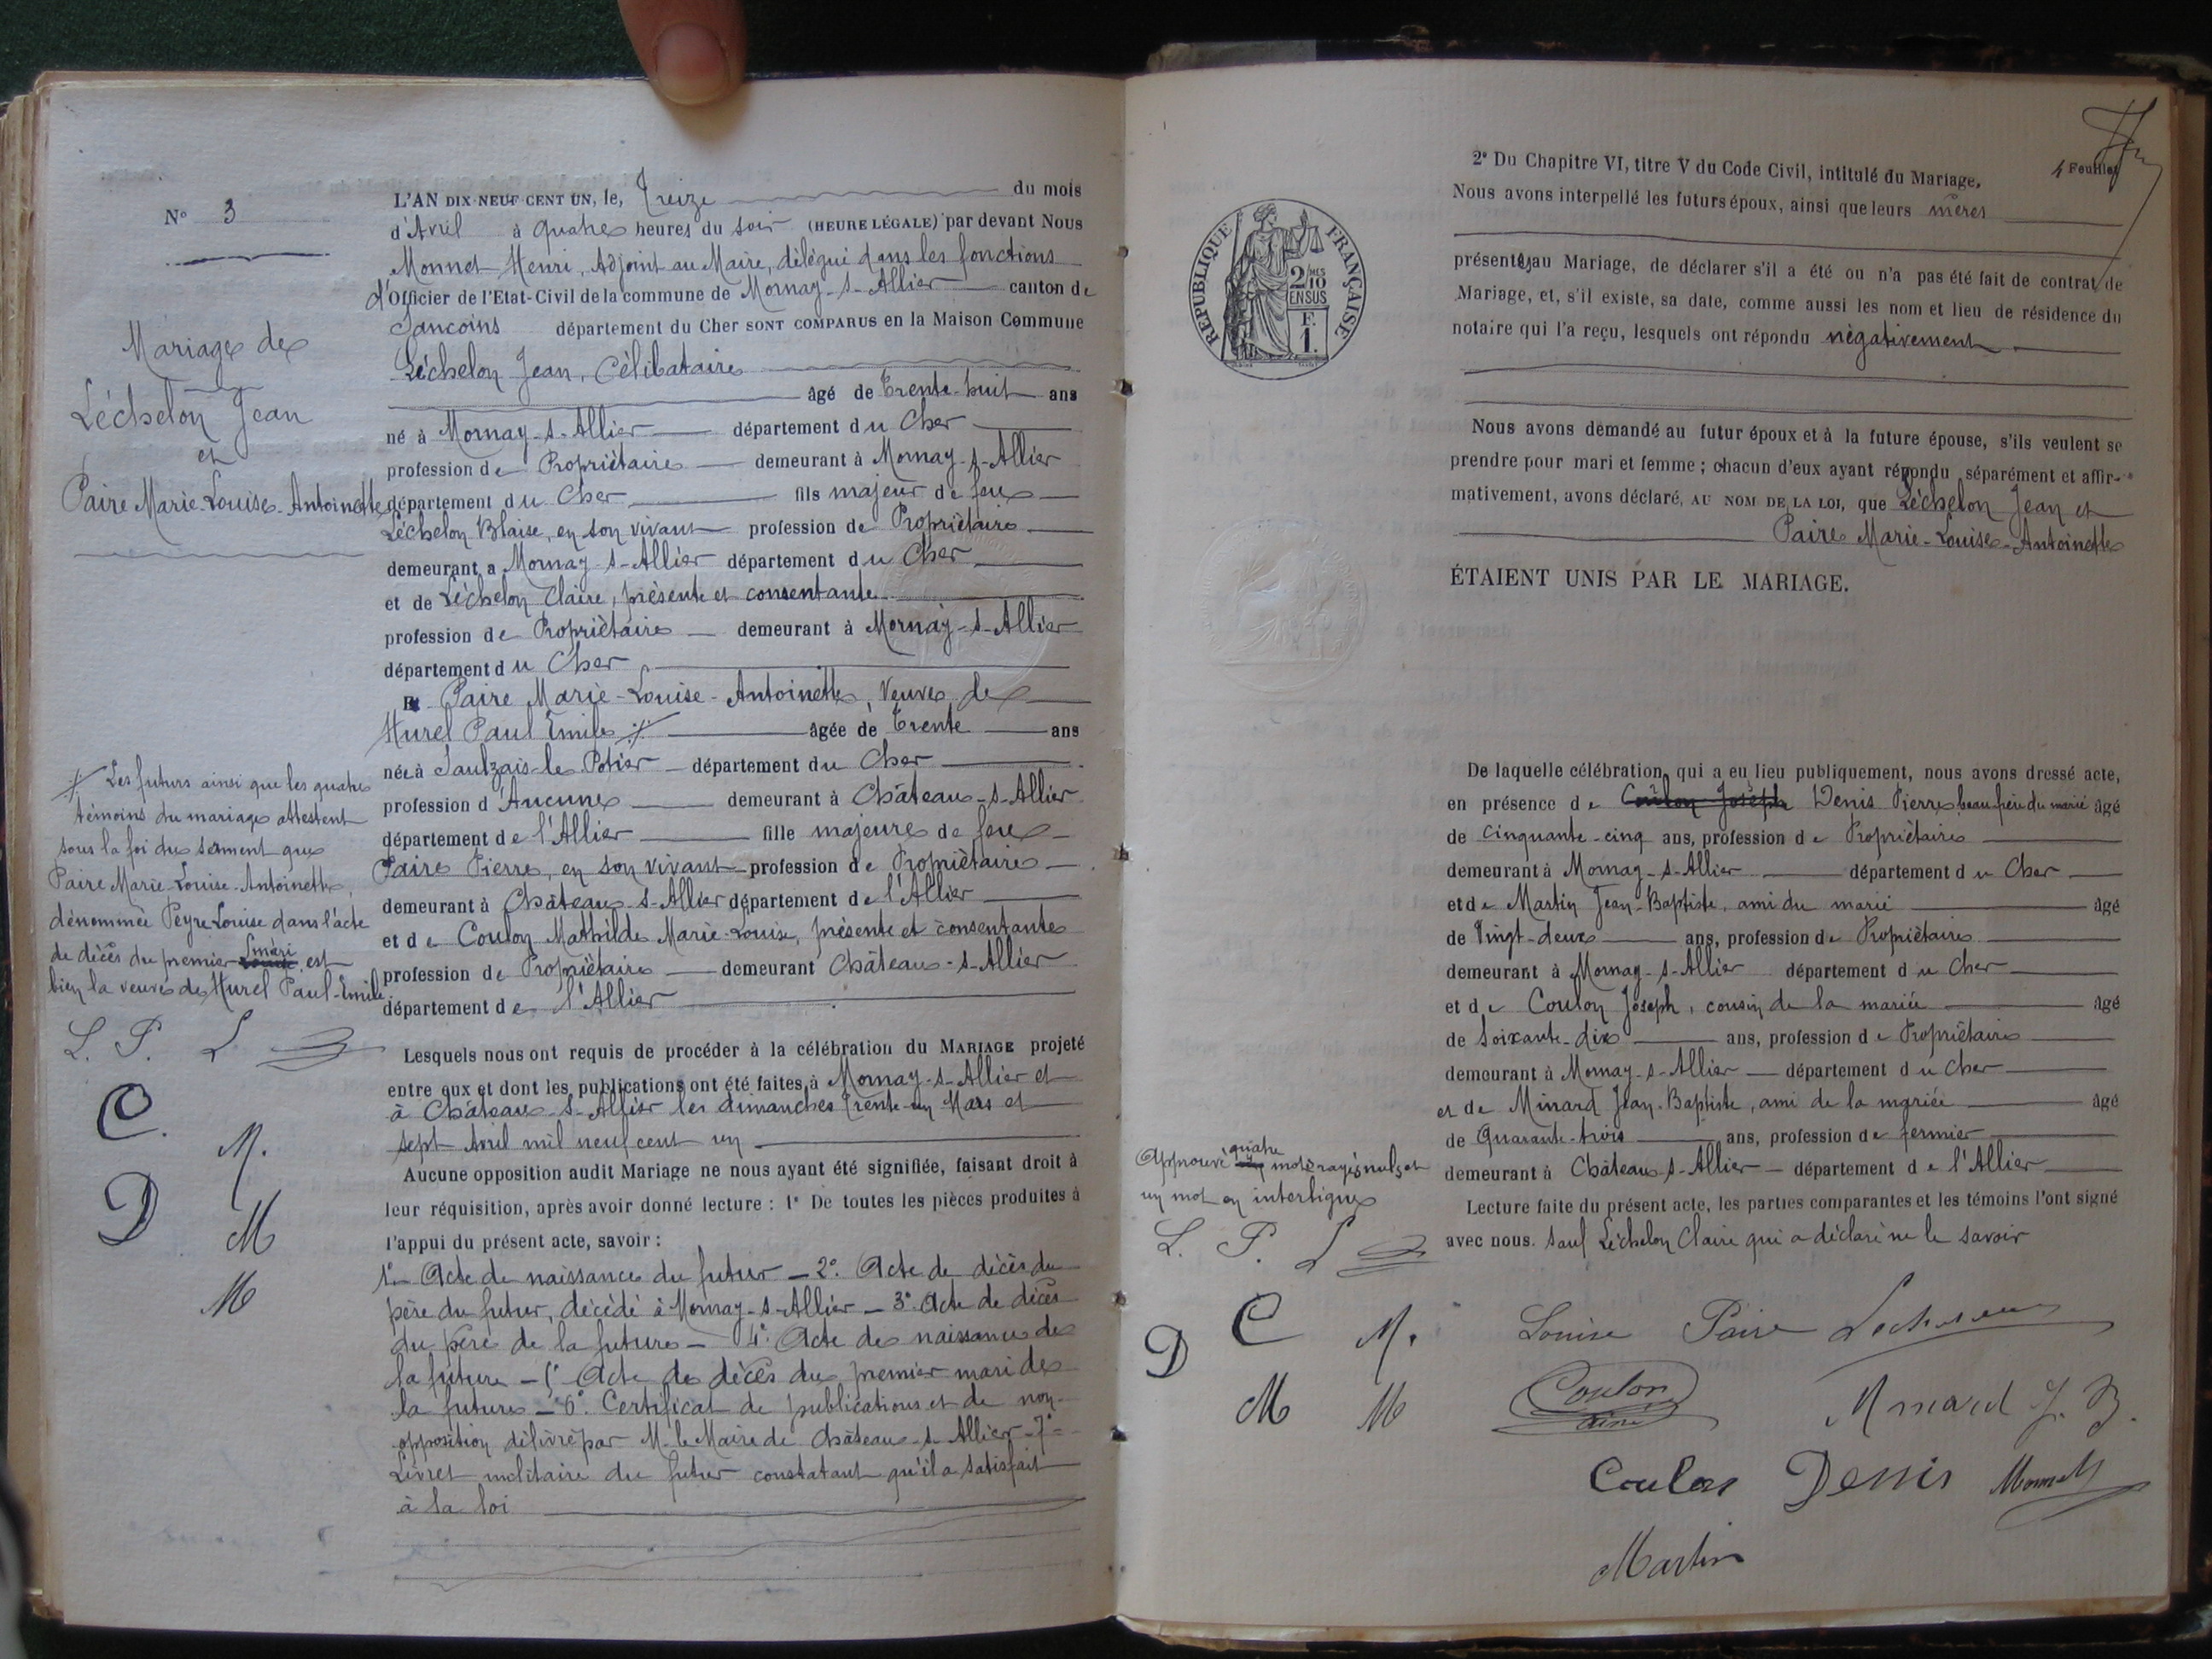 N° 3
Mariage de
Léchelon Jean
et
Paire Marie-Louise-Antoinette
L'AN DIX NEUF CENT UN, le, Treize du mois
d'Avril à quatre heures du soir (HEURE LÉGALE) par devant Nous
Monnet Henri, Adjoint au Maire, délégué dans les fonctions
d'Officier de l'Etat-Civil de la commune de Mornay-s-Allier canton de
Sancoins département du Cher SONT COMPARUS en la Maison Commune
Léchelon Jean, Célibataire
âgé de Trente-huit ans
né à Mornay-s-Allier département du Cher
profession de Propriétaire demeurant à Mornay-s-Allier
département du Cher fils majeur de feu
Léchelon Blaise, en son vivant profession de Propriétaire
demeurant a Mornay-s-Allier département du Cher
et de Léchelon Claire, présente et consentante
profession de Propriétaire demeurant à Mornay-s-Allier
département du Cher
Et Paire Marie-Louise-Antoinette, Veuve de
Hurel Paul Emile âgée de Trente ans
née à Saulzais-le-Potier département du Cher
profession d'Aucune demeurant à Château-s-Allier
département de l'Allier fille majeure de feu
Paire Pierre, en son vivant profession de Propriétaire
demeurant à Château-s-Allier département de l'Allier
et de Coulon Mathilde Marie-Louise, présente et consentante
profession de Propriétaire demeurant Château-s-Allier
département de l'Allier
Lesquels nous ont requis de procéder à la célébration du MARIAGE projeté
entre eux et dont les publications ont été faites à Mornay-s-Allier et
à Château-s-Allier les dimanches trente-un Mars et
sept Avril mil neuf cent un
Aucune opposition audit Mariage ne nous ayant été signifiée, faisant droit à
leur réquisition, après avoir donné lecture : 1° De toutes les pièces produites à
l'appui du présent acte, savoir :
1° Acte de naissance du futur - 2° Acte de décès du
père du futur, décédé à Mornay-s-Allier - 3° Acte de décès
du père de la future - 4° Acte de naissance de
la future - 5° Acte de décès du premier mari de
la future - 6° Certificat de publications et de non-
opposition délivré par M. le Maire de Château-s-Allier - 7°
Livret militaire du futur constatant qu'il a satisfait
à la loi
Les futurs ainsi que les quatre
témoins du mariage attestent
sous la foi du serment que
Paire Marie-Louise-Antoinette,
dénommée Peyre Louise dans l'acte
de décès du premier mari est
bien la veuve de Hurel Paul-Emile
L. P. L
C. M.
D M
M
4 Feuillet
RÉPUBLIQUE FRANÇAISE
2/10 MES
EN SUS
F.
1.
2° Du Chapitre VI, titre V du Code Civil, intitulé du Mariage.
Nous avons interpellé les futurs époux, ainsi que leurs mères
présentes au Mariage, de déclarer s'il a été ou n'a pas été fait de contrat de
Mariage, et, s'il existe, sa date, comme aussi les nom et lieu de résidence du
notaire qui l'a reçu, lesquels ont répondu négativement
Nous avons demandé au futur époux et à la future épouse, s'ils veulent se
prendre pour mari et femme ; chacun d'eux ayant répondu séparément et affir-
mativement, avons déclaré, AU NOM DE LA LOI, que Léchelon Jean et
Paire Marie-Louise-Antoinette
ÉTAIENT UNIS PAR LE MARIAGE.
De laquelle célébration qui a eu lieu publiquement, nous avons dressé acte,
en présence de Coulon Joseph Denis Pierre beau frère du marié âgé
de Cinquante-cinq ans, profession de Propriétaire
demeurant à Mornay-s-Allier département du Cher
et de Martin Jean-Baptiste, ami du marié âgé
de Vingt-deux ans, profession de Propriétaire
demeurant à Mornay-s-Allier département du Cher
et de Coulon Joseph, cousin de la mariée âgé
de Soixante-dix ans, profession de Propriétaire
demeurant à Mornay-s-Allier département du Cher
et de Minard Jean-Baptiste, ami de la mariée âgé
de Quarante-trois ans, profession de fermier
demeurant à Château-s-Allier département de l'Allier
Lecture faite du présent acte, les parties comparantes et les témoins l'ont signé
avec nous. sauf Léchelon Claire qui a déclaré ne le savoir
Approuvé quatre mots rayés nuls et
un mot en interligne
L. P. L
C M.
D
M M
Louise Paire Lechelon
Coulon
aine
Minard J. B.
Coulon Denis Monnet
Martin